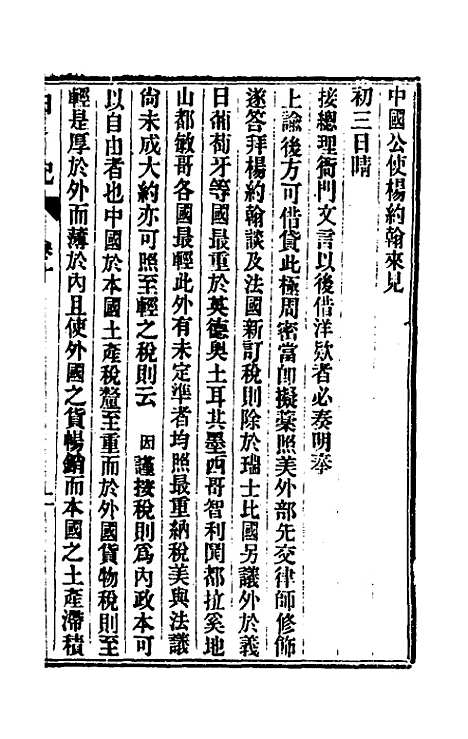 中國公使楊約翰來見
初三日晴
接總理衙門文言以後借洋欵者必奏明奉
上諭後方可借貸此極周密當卽擬藁照美外部先交律師修飾
遂答拜楊約翰談及法國新訂稅則除於瑞士比國另議外於義
日葡萄牙等國最重於英德奥土耳其墨西哥智利関都拉奚地
山都敏哥各國最輕此外有未定準者均照最重納稅美與法議
尙未成大約亦可照至輕之稅則云 因謹按稅則爲內政本可
以自由者也中國於本國土產稅釐至重而於外國貨物稅則至
輕是厚於外而薄於內且使外國之貨暢銷而本國之土產滯積
日記 卷十